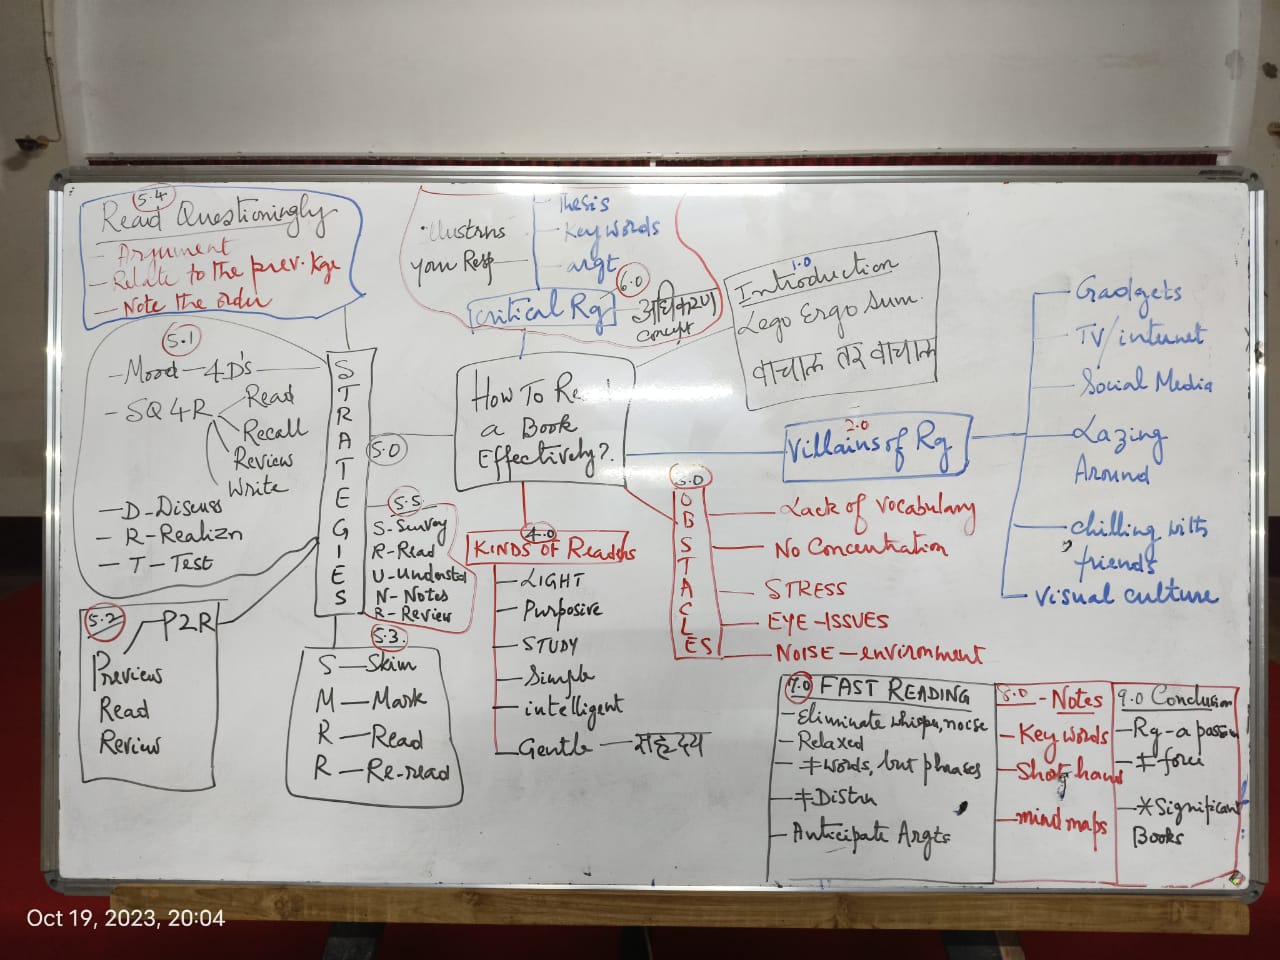 5.4
Read Questioningly
- Argument
- Relate to the prev. Kge
- Note the order
5.1
- Mood - 4D's
- SQ4R
Read
Recall
Review
Write
- D - Discuss
- R - Realizn
- T - Test
5.2
P2R
Preview
Read
Review
STRATEGIES
5.0
5.5
S - Survey
R - Read
U - Understd
N - Notes
R - Review
5.3.
S - Skim
M - Mark
R - Read
R - Re-read
Thesis
Key words
argt
your Resp
Critical Rg
6.0
अधिकरण
concept
How To Re
a Book
Effectively?
1.0
Introduction
Lego Ergo Sum.
2.0
Villains of Rg
Gadgets
TV/internet
Social Media
Lazing
Around
chilling with
friends
Visual culture
OBSTACLES
Lack of vocabulary
No Concentration
STRESS
EYE-ISSUES
NOISE - environment
4.0
KINDS OF Readers
LIGHT
Purposive
STUDY
Simple
intelligent
Gentle - सहृदय
7.0 FAST READING
- Eliminate whisper, noise
- Relaxed
- ≠ words, but phrases
- ≠ Distrn
- Anticipate Argts
8.0 - Notes
- Key words
- Short hand
- mind maps
9.0 Conclusion
- Rg - a passion
- ≠ force
- * Significant
Books
Oct 19, 2023, 20:04